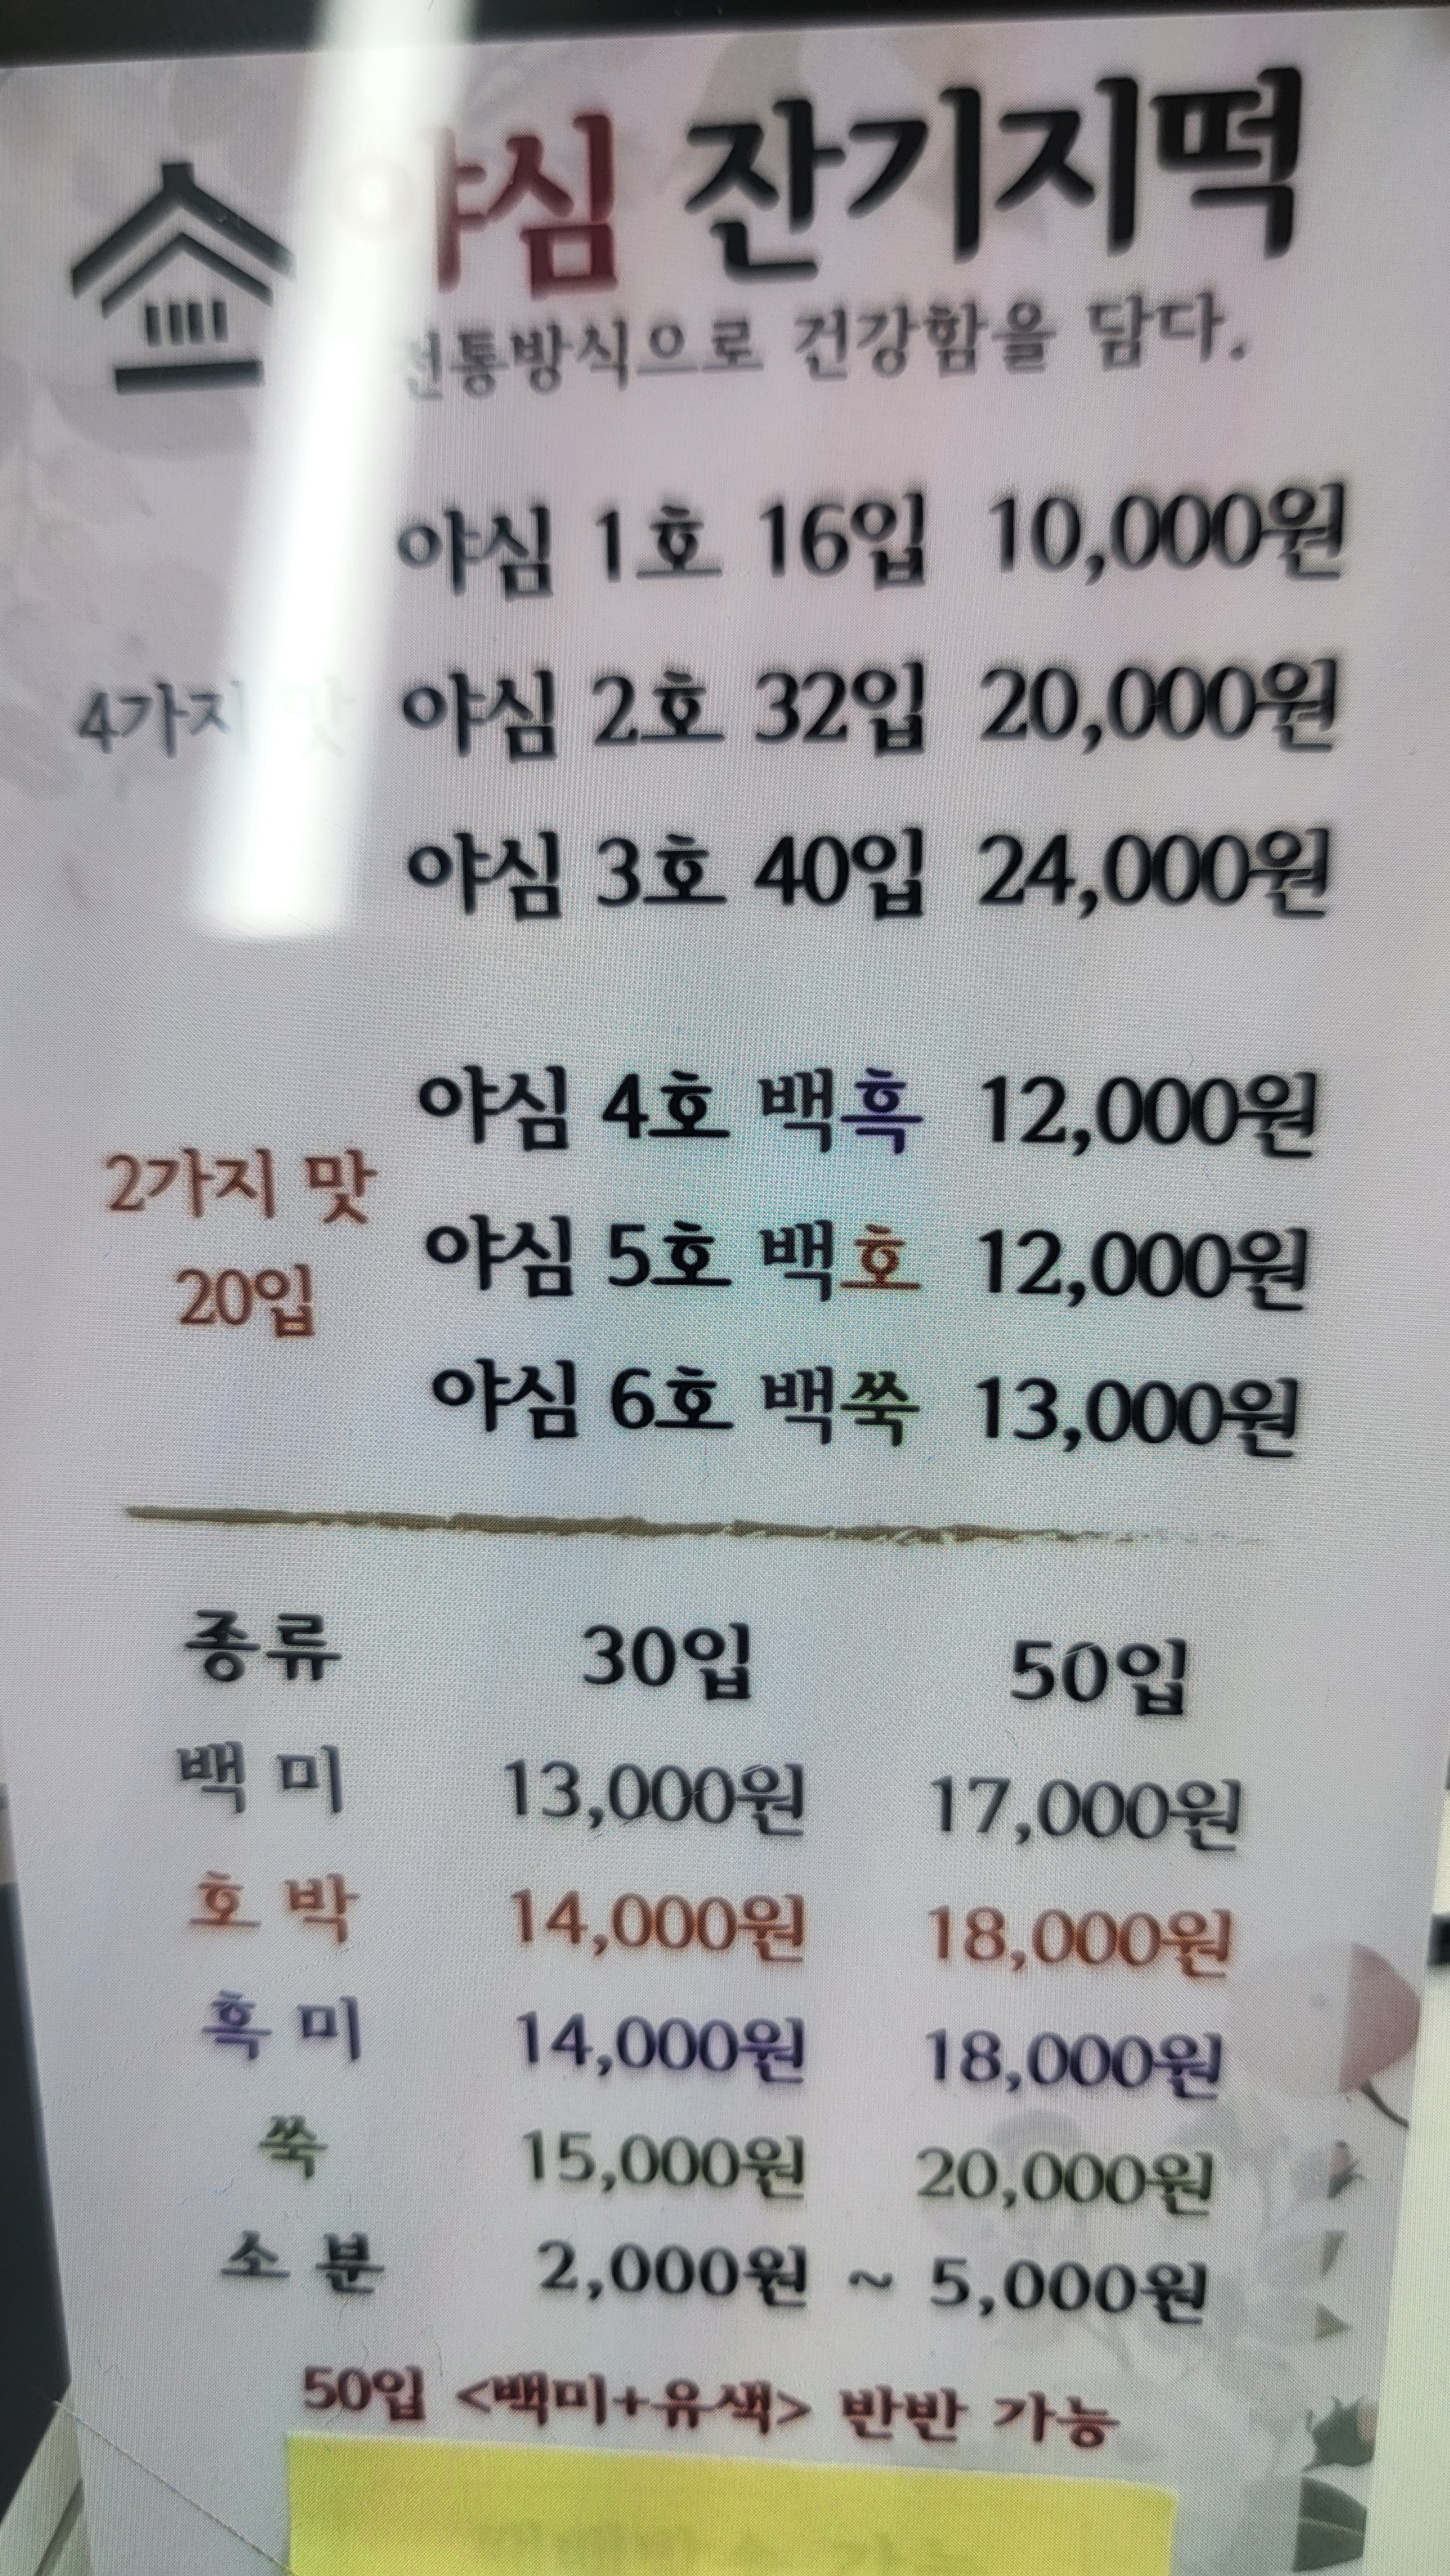 야심 잔기지떡
전통방식으로 건강함을 담다.
야심 1호 16입 10,000원
4가지 맛 야심 2호 32입 20,000원
야심 3호 40입 24,000원
야심 4호 백흑 12,000원
2가지 맛
야심 5호 백호 12,000원
20입
야심 6호 백쑥 13,000원
종류 30입 50입
백 미 13,000원 17,000원
호 박 14,000원 18,000원
흑 미 14,000원 18,000원
쑥 15,000원 20,000원
소 분 2,000원 ~ 5,000원
50입 <백미+유색> 반반 가능